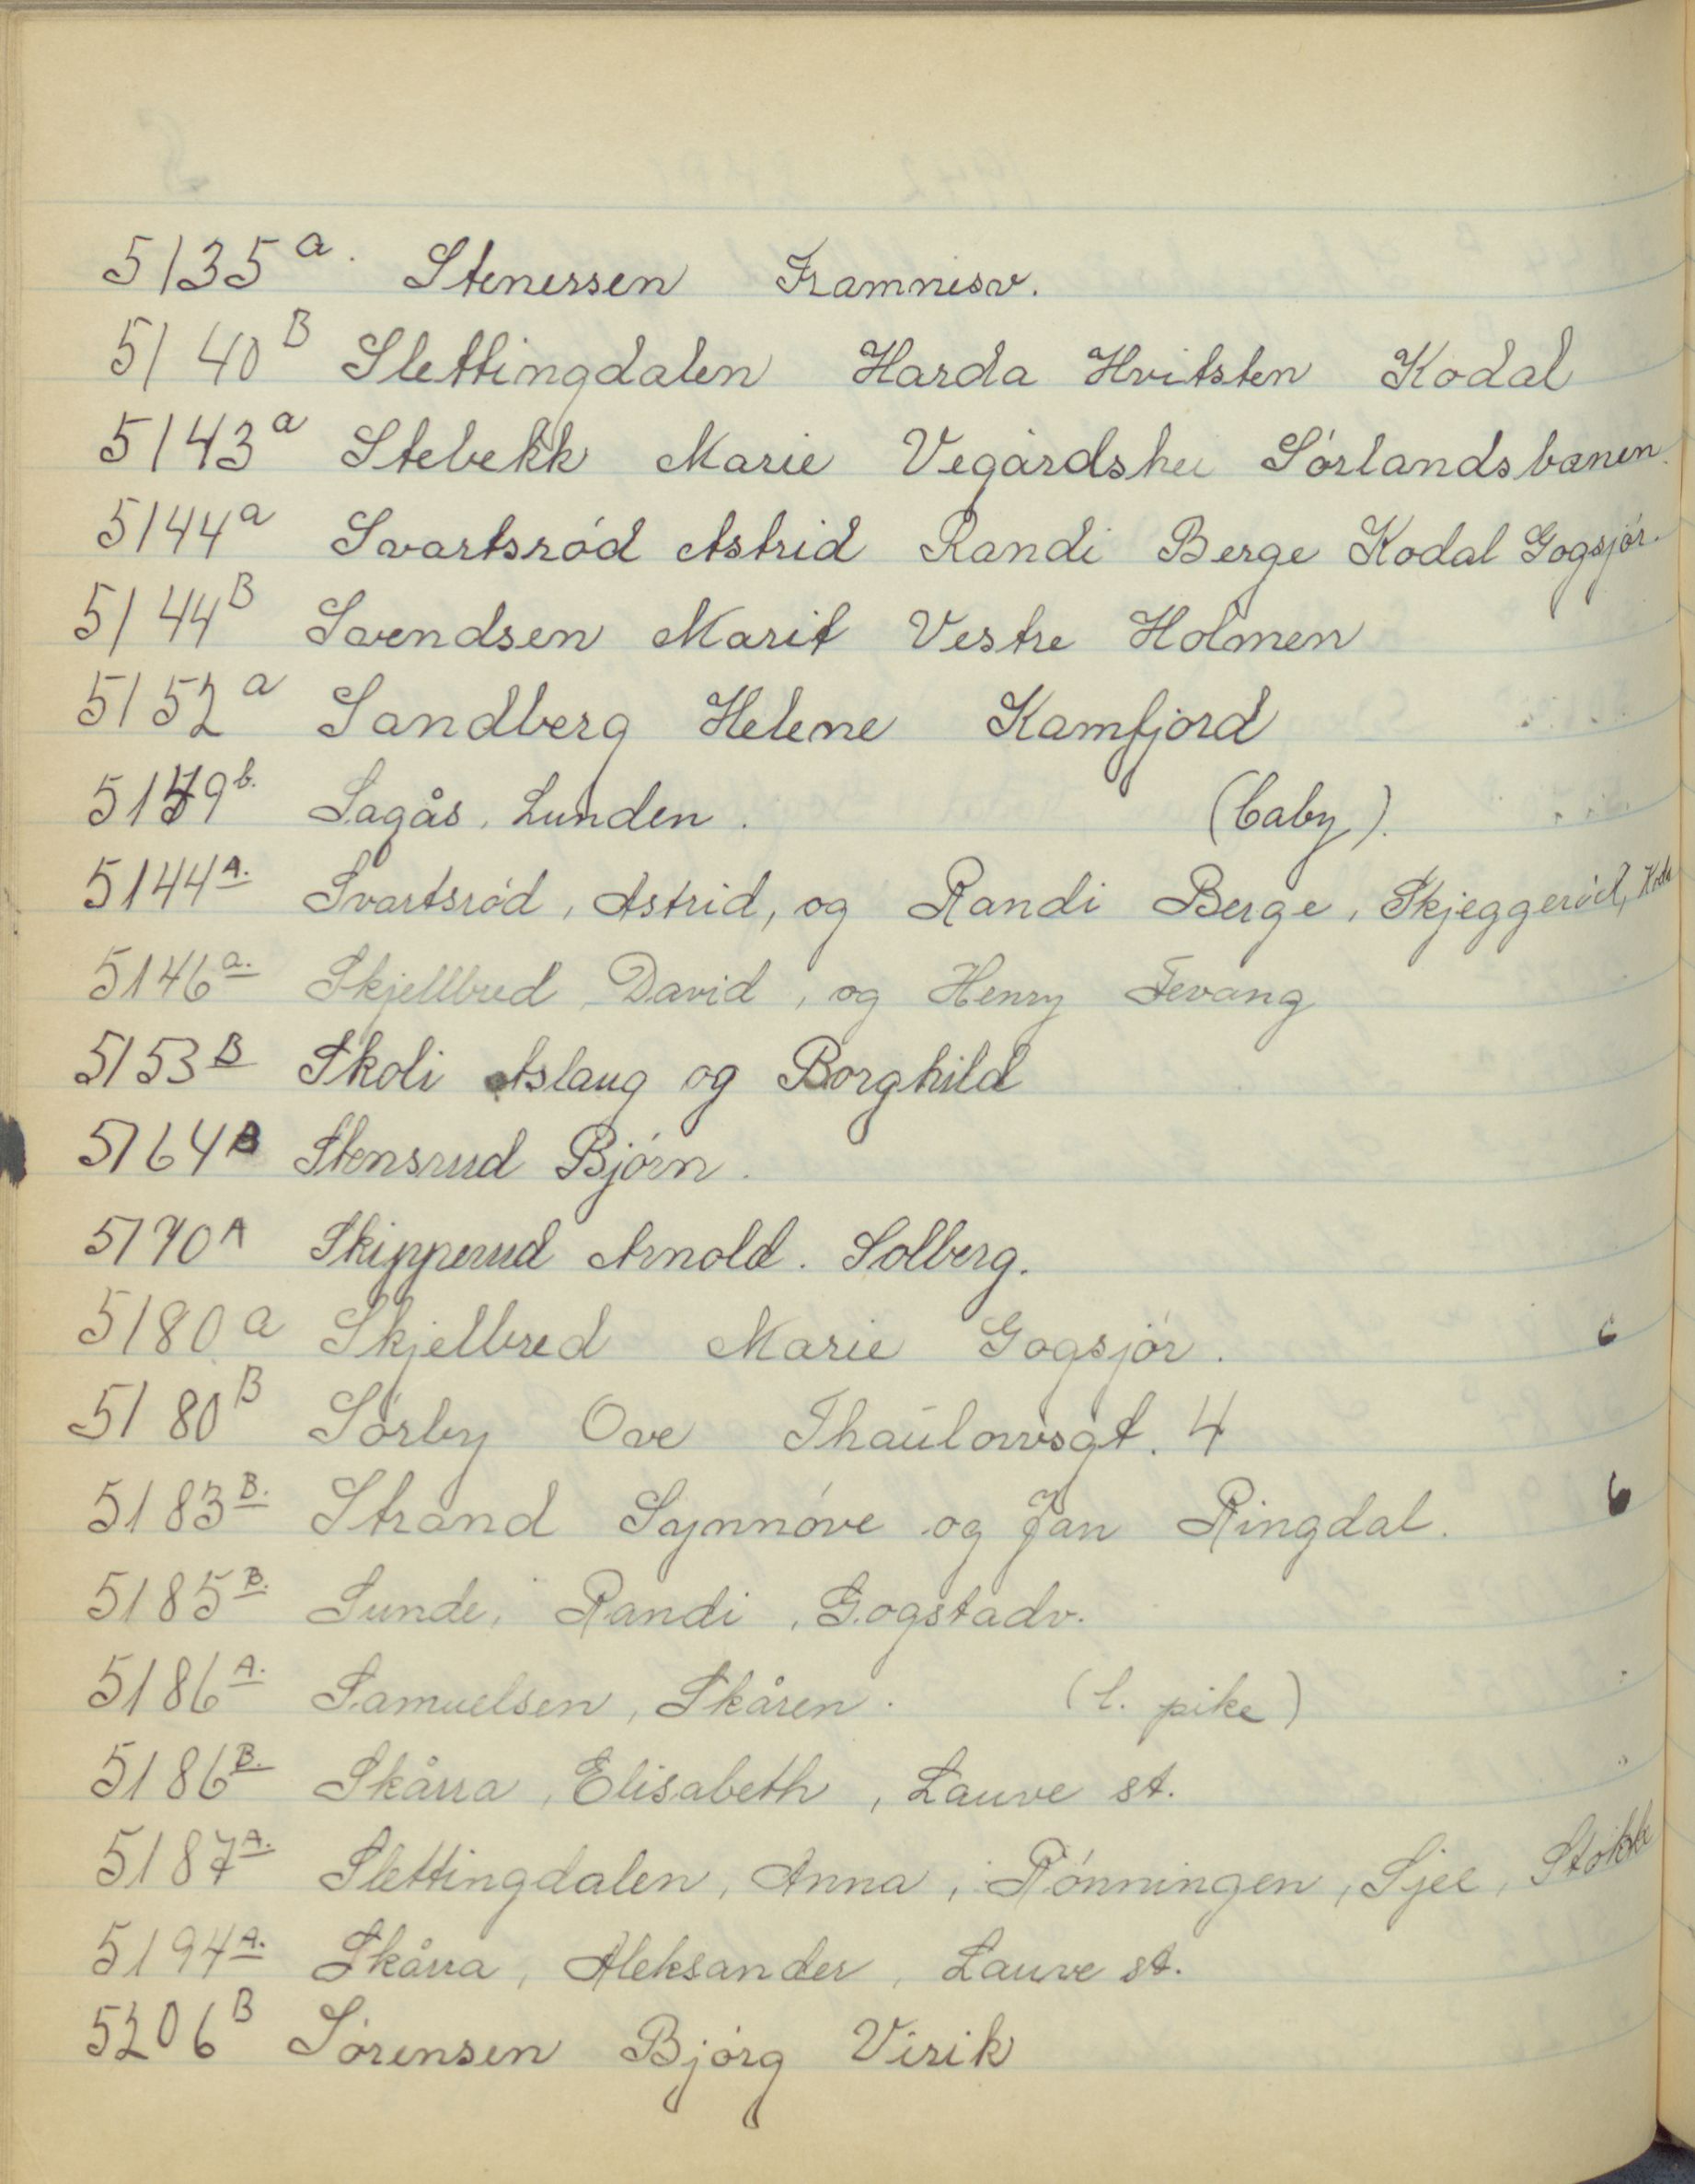 5135a. Stenersen Framnesv.
5140B Slettingdalen Harda Hvitsten Kodal
5143a Stebekk Marie Vegårdshei Sørlandsbanen.
5144a Svartsrød Astrid Randi Berge Kodal Gogsjør.
5144B Svendsen Marit Vestre Holmen
5152a Sandberg Helene Kamfjord
51 9b. Sagås, Lunden. (baby).
5144A. Svartsrød, Astrid, og Randi Berge, Skjeggerød,
5146a. Skjellbred, David, og Henry Fevang
5153B Skoli Aslaug og Borghild
5164B Stensrud Bjørn.
5170A Skipperud Arnold. Solberg.
5180a Skjelbred Marie Gogsjør. 6
5180B Sørby Ove Thaulowsgt. 4
5183B. Strand Synnøve og Jan Ringdal. 6
5185B. Sunde, Randi, Gogstadv.
5186A. Samuelsen, Skåren. (l. pike)
5186B. Skårra, Elisabeth, Lauve st.
5187A. Slettingdalen, Anna, Rønningen, Sjee, Stokke
5194A. Skårra, Aleksander, Lauve st.
5206B Sørensen Bjørg Virik